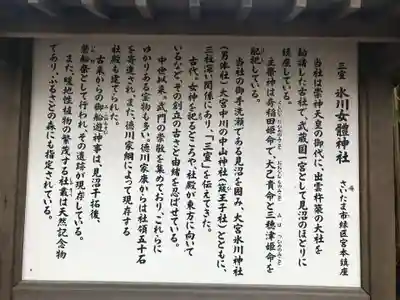 三室 氷川女體神社
さいたま市緑区宮本鎮座
当社は崇神天皇の御代に、出雲杵築の大社を
勧請した古社で、武蔵国一宮として見沼のほとりに
鎮座している。
主祭神は奇稲田姫命で、大己貴命と三穂津姫命を
配祀している。
当社の御手洗瀬である見沼を囲み、大宮氷川神社
(男体社)、大宮中川の中山神社(簸王子社)とともに、
三社深い関係にあり、「三室」を伝えてきた。
古代、女神を祀るところや、社殿が東方に向いて
いるなど、その創立の古さと由緒を忍ばせている。
中世以来、武門の崇敬を集めており、これらに
ゆかりある宝物も多い。徳川家康からは社領五十石
を寄進され、また、徳川家綱によって現存する
社殿も建てられた。
古来からの御船遊神事は、見沼干拓後、
磐船祭として行われその遺跡が現存している。
また、暖地性植物の繁茂する社叢は天然記念物
であり、ふるさとの森にも指定されている。